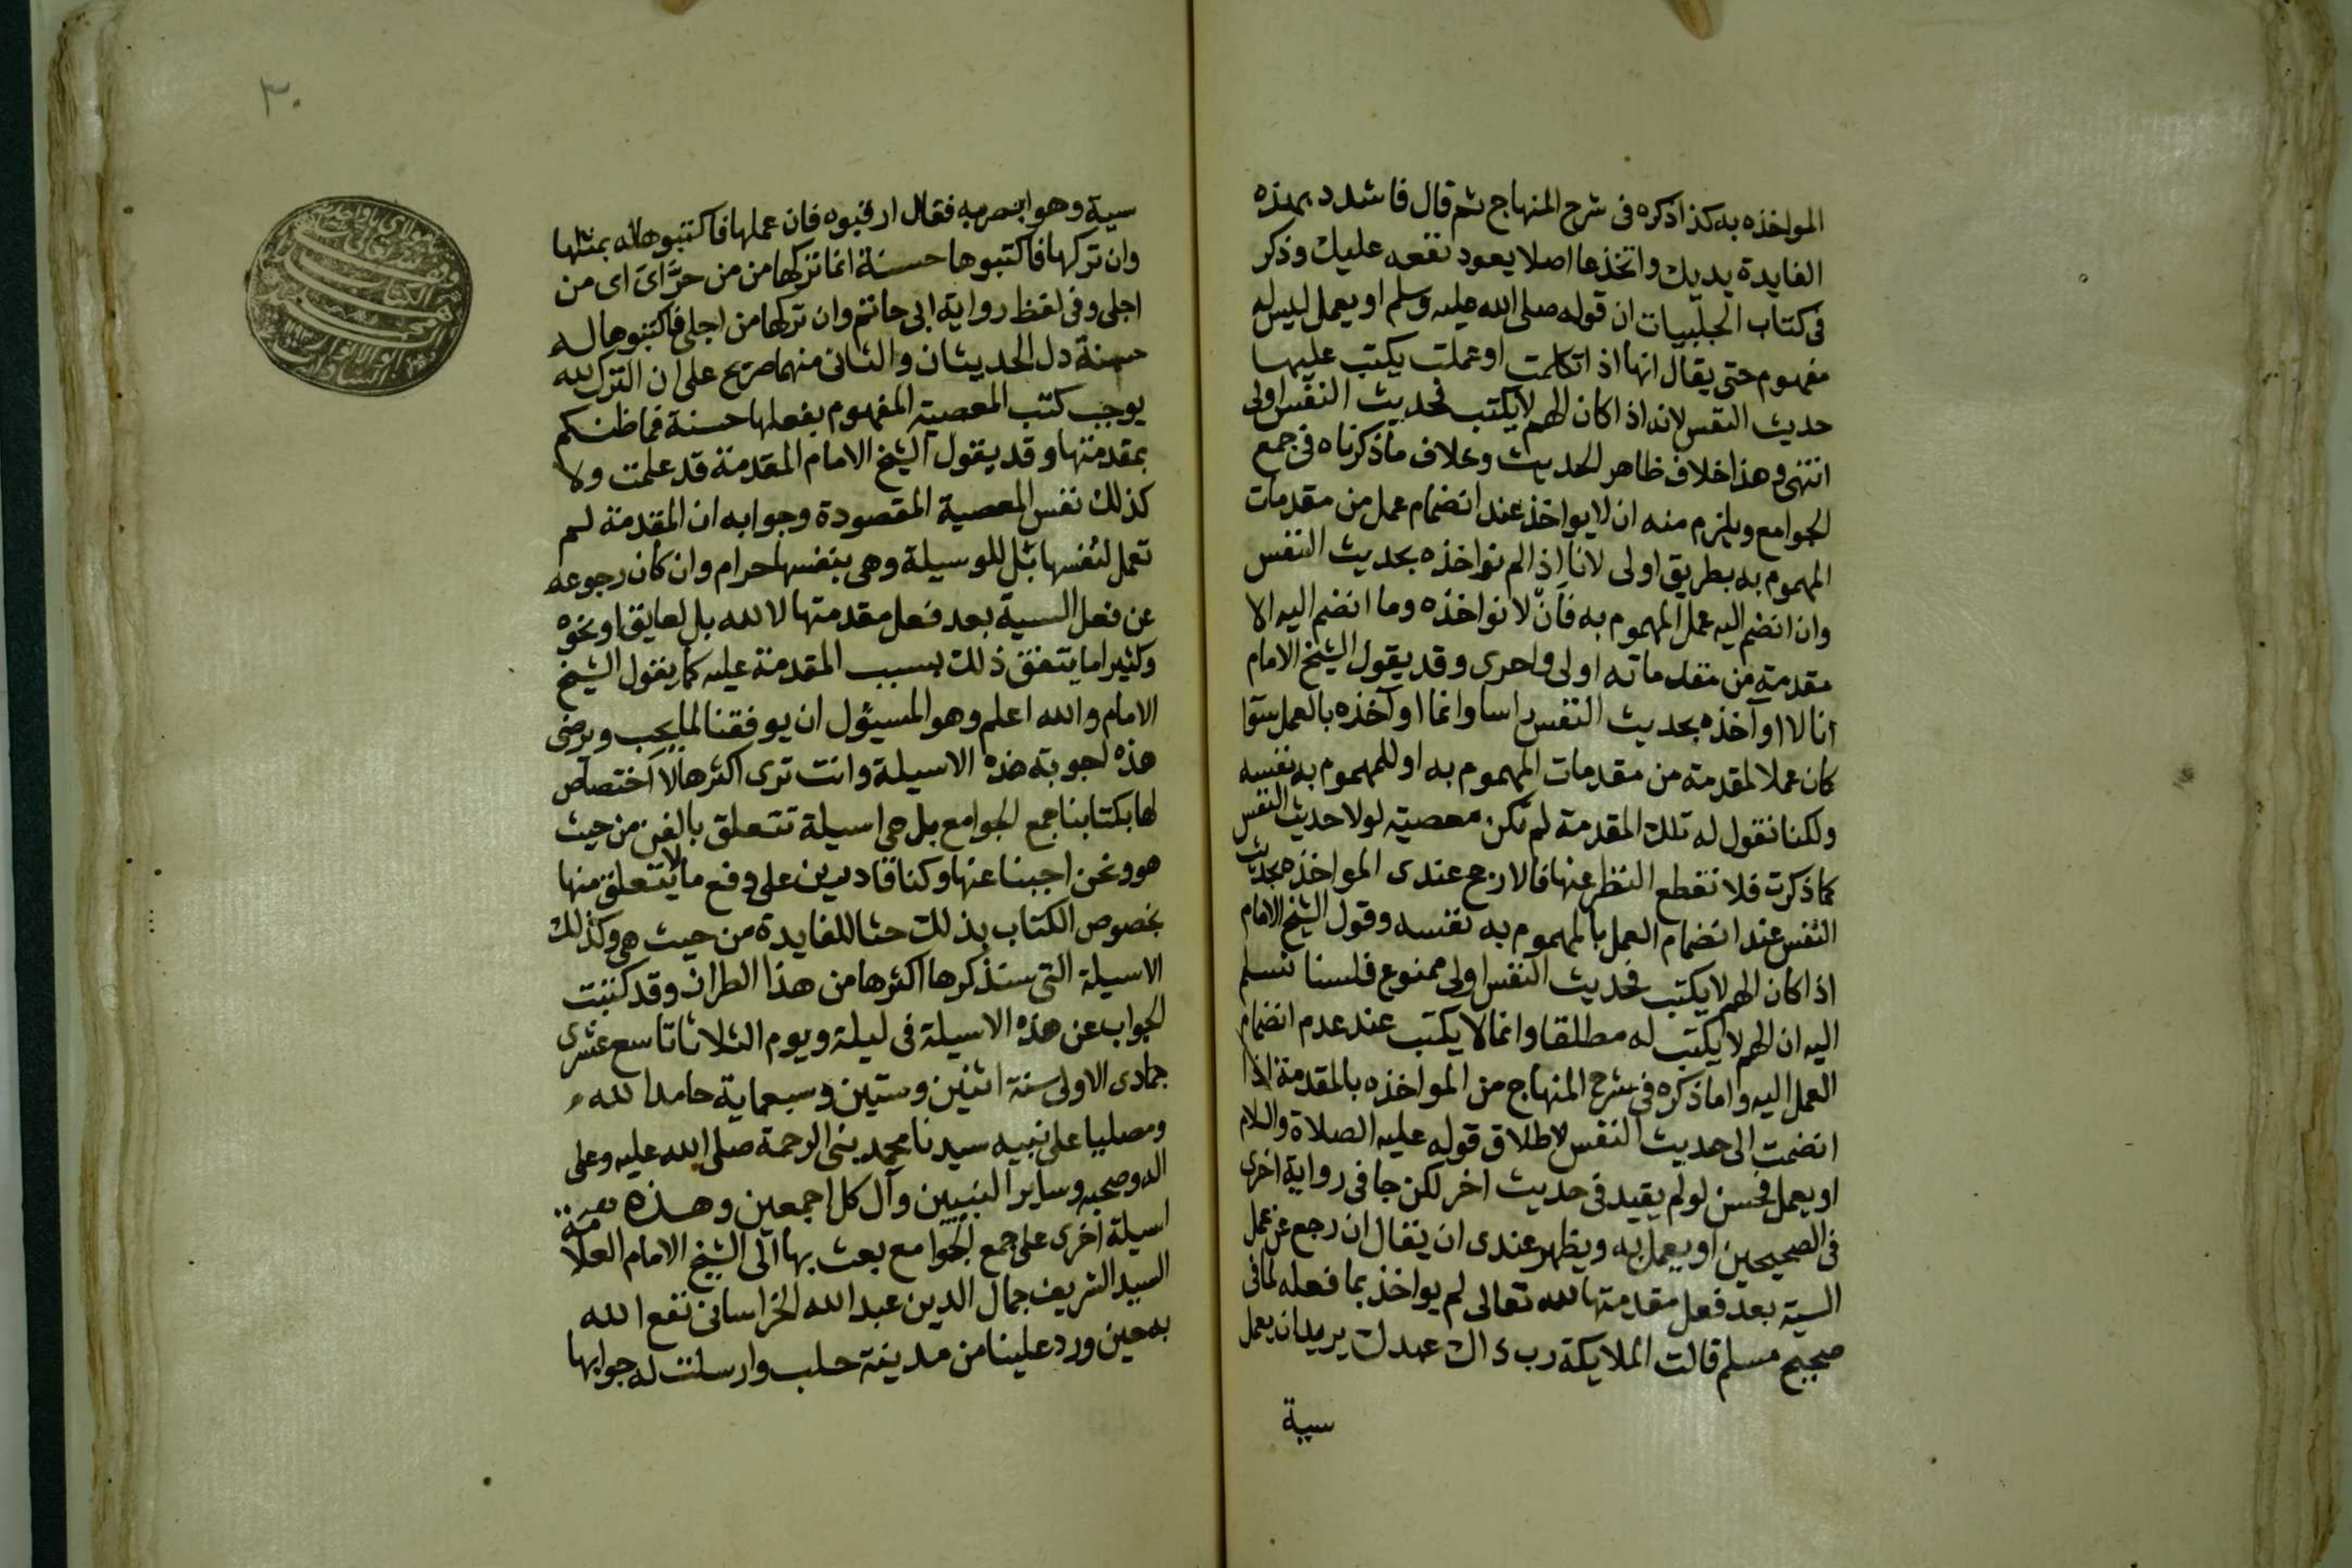 المواخذه به كذا ذكره فى شرح المنهاج ثم قال فاشدد بهذه
الفايدة يديك واتخذها اصلا يعود نفعه عليك وذكر
فى كتاب الحلبيات ان قوله صلى الله عليه وسلم او يعمل ليس له
مفهوم حتى يقال انها اذا تكلمت او عملت يكتب عليها
حديث النفس لانه اذا كان الهم لا يكتب فحديث النفس اولى
انتهى وهذا خلاف ظاهر الحديث وخلاف ما ذكرناه فى جمع
الجوامع ويلزم منه ان لا يواخذ عند انضمام عمل من مقدمات
المهموم به بطريق اولى لانا اذا لم نواخذه بحديث النفس
وان انضم اليه عمل المهموم به فان لا نواخذه وما انضم اليه الا
مقدمة من مقدماته اولى واحرى وقد يقول الشيخ الامام
انا لا اوآخذه بحديث النفس راسا وانما اوآخذه بالعمل سوآ
كان عملا لمقدمة من مقدمات المهموم به او للمهموم به نفسه
ولكنا نقول له تلك المقدمة لم تكن معصية لولا حديث النفس
كما ذكرت فلا نقطع النظر عنها فالارجح عندى المواخذه بحديث
النفس عند انضمام العمل بالمهموم به نفسه وقول الشيخ الامام
اذا كان الهم لا يكتب فحديث النفس اولى ممنوع فلسنا نسلم
اليه ان الهم لا يكتب له مطلقا وانما لا يكتب عند عدم انضمام
العمل اليه واما ذكره فى شرح المنهاج من المواخذه بالمقدمة اذا
انضمت الى حديث النفس لاطلاق قوله عليه الصلاة والسلام
او يعمل فحسن لو لم يقيد فى حديث اخر لكن جا فى رواية اخرى
فى الصحيحين او يعمل به ويظهر عندى ان يقال ان رجع عن عمل
السية بعد فعل مقدمتها لله تعالى لم يواخذ بما فعله لما فى
صحيح مسلم قالت الملايكة رب ذاك عبدك يريد ان يعمل
سية
٣٠
سية وهو ابصر به فقال ارقبوه فان عملها فاكتبوها له بمثلها
وان تركها فاكتبوها حسنة انما تركها من من جرَّاى اى من
اجلى وفى لفظ رواية ابى حاتم وان تركها من اجلى فاكتبوها له
حسنة دل الحديثان والثانى منهما صريح على ان الترك لله
يوجب كتب المعصية المفهوم بفعلها حسنة فما ظنكم
بمقدمتها وقد يقول الشيخ الامام المقدمة قد علمت ولا
كذلك نفس المعصية المقصودة وجوابه ان المقدمة لم
تعمل لنفسها بل للوسيلة وهى بنفسها حرام وان كان رجوعه
عن فعل السية بعد فعل مقدمتها لا لله بل لعايق او نحوه
وكثيرا ما يتفق ذلك بسبب المقدمة عليه كما يقول الشيخ
الامام والله اعلم وهو المسيؤل ان يوفقنا لما يحب ويرضى
هذه اجوبة هذه الاسيلة وانت ترى اكثرها لا اختصاص
لها بكتابنا جمع الجوامع بل هى اسيلة تتعلق بالفن من حيث
هو ونحن اجبنا عنها وكنا قادرين على دفع ما لا يتعلق منها
بخصوص الكتاب بذلك حثا للفايدة من حيث هى وكذلك
الاسيلة التى سنذكرها اكثرها من هذا الطراز وقد كتبت
الجواب عن هذه الاسيلة فى ليلة ويوم الثلاثا تاسع عشرى
جمادى الاولى سنة اثنين وستين وسبعماية حامدا لله
ومصليا على نبيه سيدنا محمد بنى الرحمة صلى الله عليه وعلى
اله وصحبه وساير النبيين وآل كل اجمعين وهذه
اسيلة اخرى على جمع الجوامع بعث بها الى الشيخ الامام العلامة
السيد الشريف جمال الدين عبد الله الخراسانى نفع الله
به حين ورد علينا من مدينة حلب وارسلت له جوابها